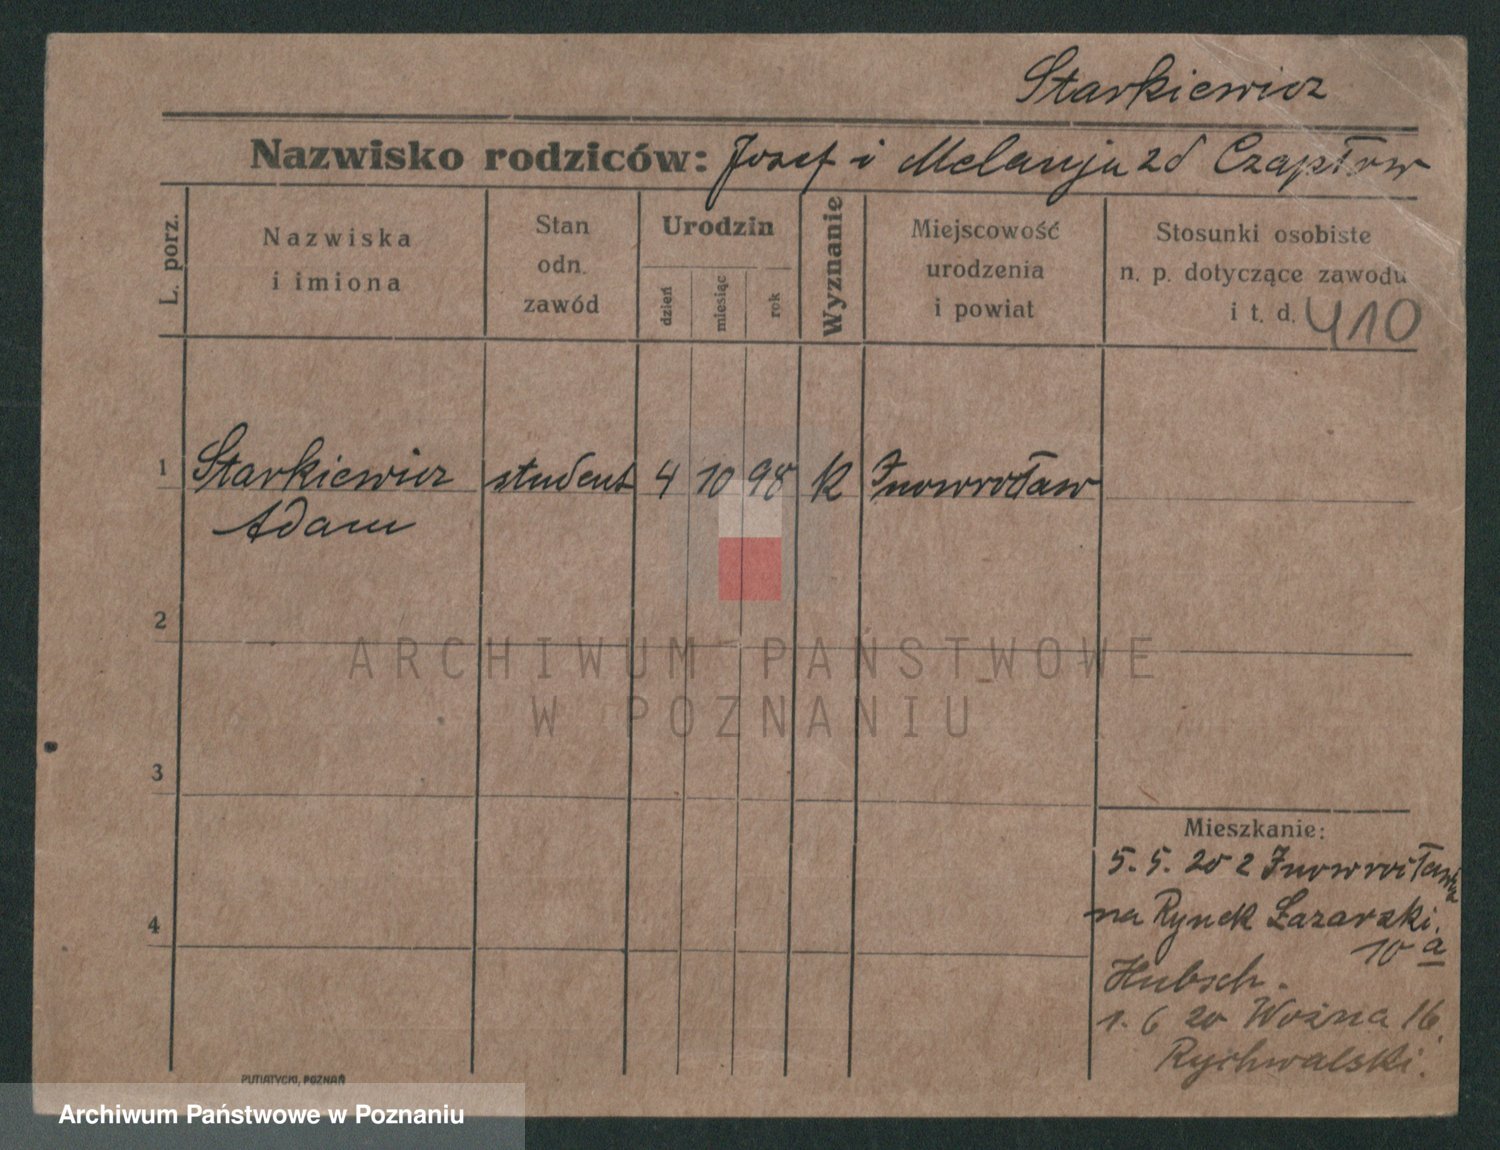 Starkiewicz
Nazwisko rodziców: Josef i Melanja zd Czapłow
L. porz.
Nazwiska
i imiona
Stan
odn.
zawód
Urodzin
dzień
miesiąc
rok
Wyznanie
Miejscowość
urodzenia
i powiat
Stosunki osobiste
n. p. dotyczące zawodu
i t. d.
410
1 Starkiewicz student 4 10 98 K Inowrocław
Adam
2
3
4
Mieszkanie:
5. 5. 20 z Inowrocławia
na Rynek Łazarski.
10 a
Hubsch.
1. 6 20 Woźna 16
Rychwalski.
PUTIATYCKI, POZNAŃ
ARCHIWUM PAŃSTWOWE
W POZNANIU
Archiwum Państwowe w Poznaniu